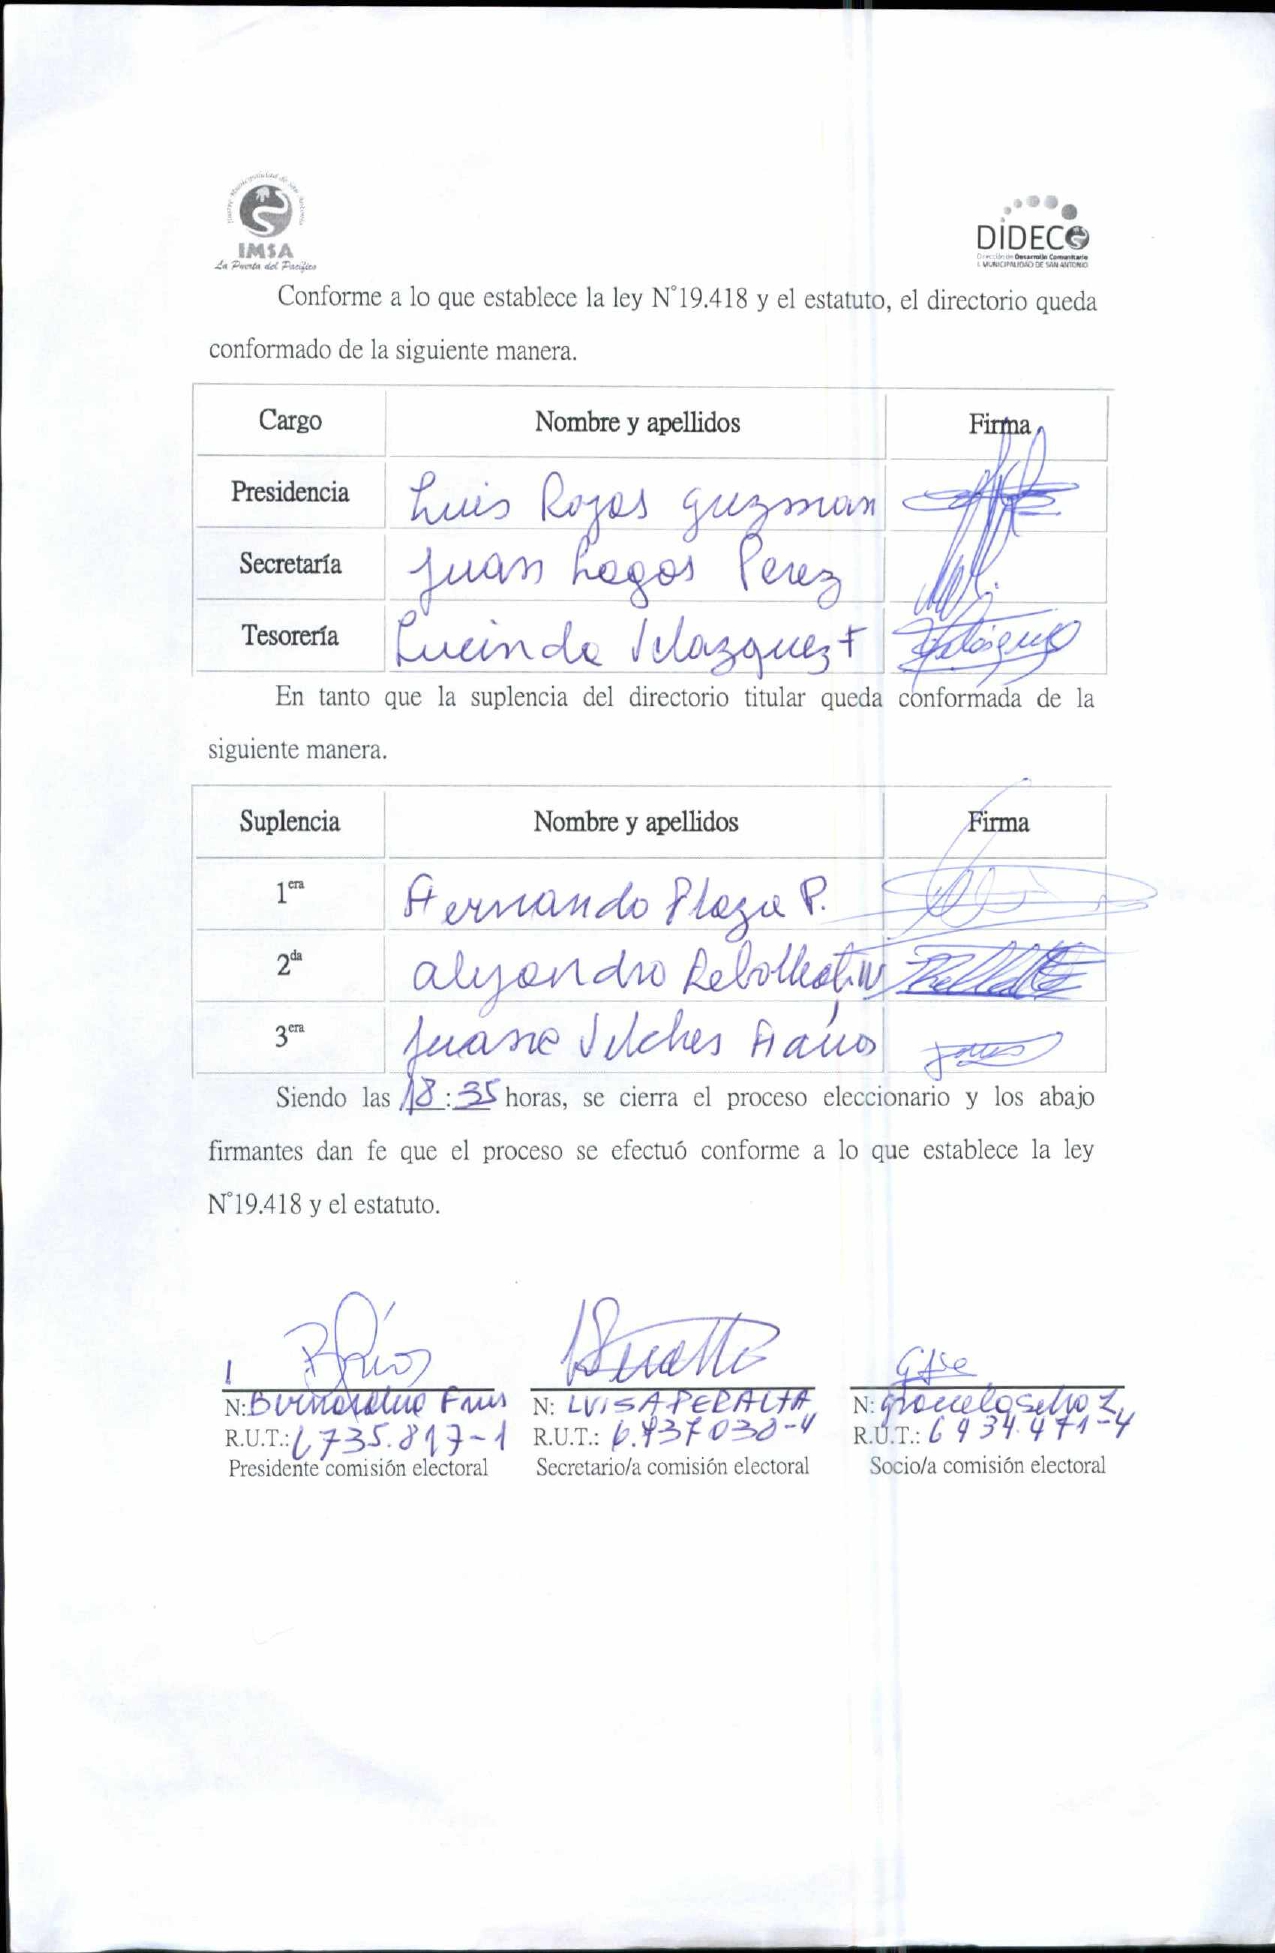 Ilustre Municipalidad de San Antonio
IMSA
La Puerta del Pacífico
DIDECO
Dirección de Desarrollo Comunitario
I. MUNICIPALIDAD DE SAN ANTONIO
Conforme a lo que establece la ley N°19.418 y el estatuto, el directorio queda
conformado de la siguiente manera.
Cargo Nombre y apellidos Firma
Presidencia Luis Rojas guzman
Secretaría Juan Lagos Perez
Tesorería Lucinda Velazquez F
En tanto que la suplencia del directorio titular queda conformada de la
siguiente manera.
Suplencia Nombre y apellidos Firma
1era Hernando Plaza P.
2da alejandro
3era Juana Vilches
Siendo las 18:35 horas, se cierra el proceso eleccionario y los abajo
firmantes dan fe que el proceso se efectuó conforme a lo que establece la ley
N°19.418 y el estatuto.
N: N: LUISA PERALTA N:
R.U.T.: 6735.817-1 R.U.T.: R.U.T.:
Presidente comisión electoral Secretario/a comisión electoral Socio/a comisión electoral